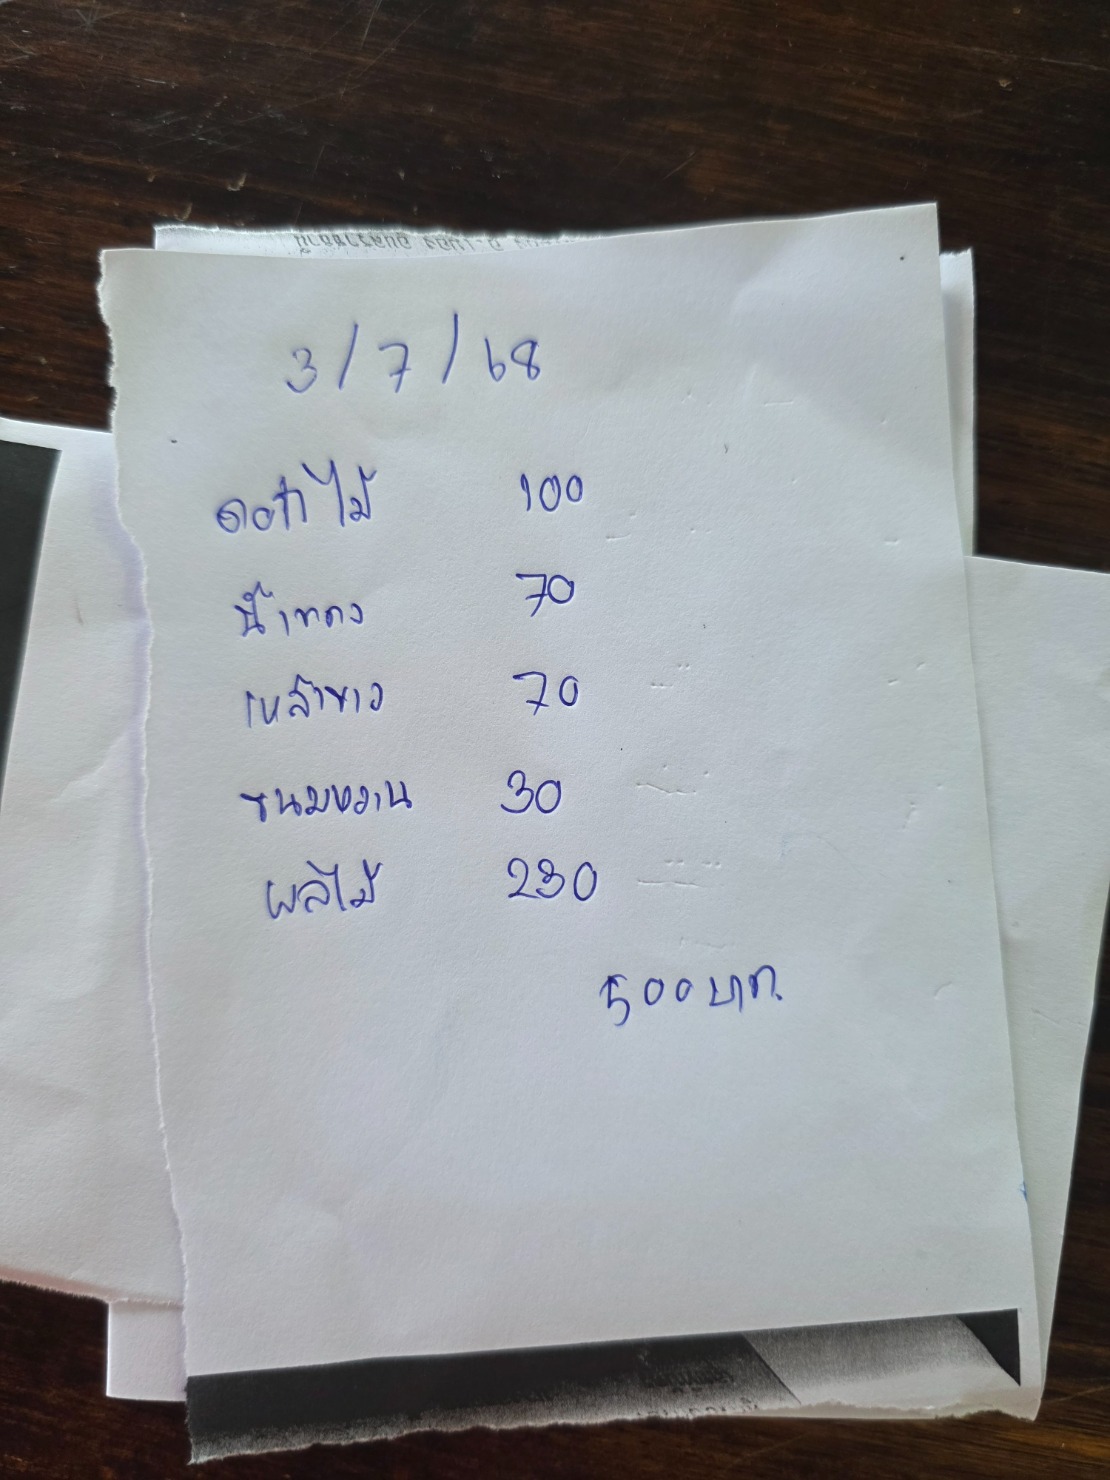 3/7/68
ดอกไม้ 100
น้ำแดง 70
เหล้าขาว 70
ขนมหวาน 30
ผลไม้ 230
500 บาท